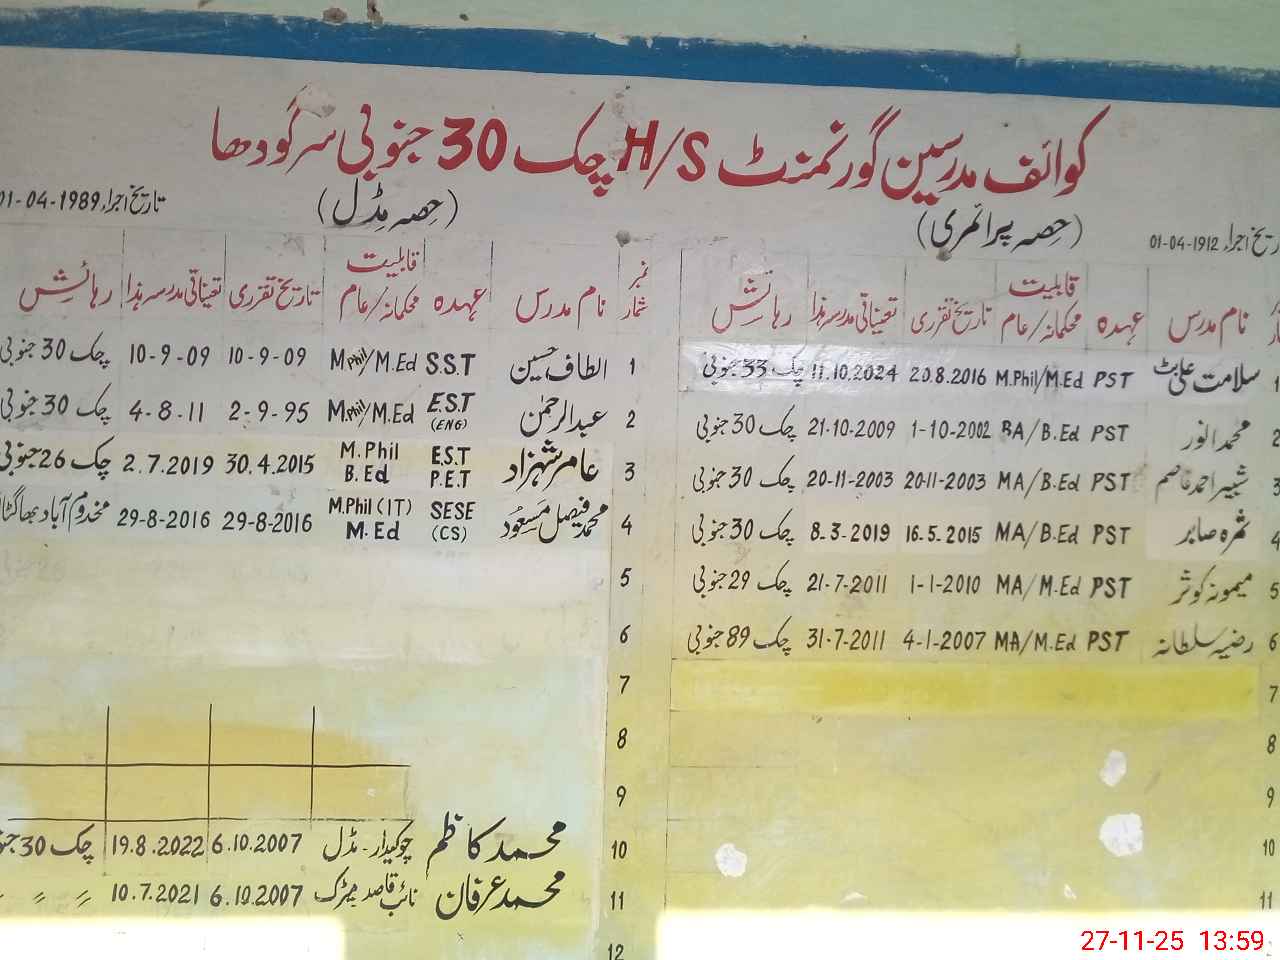 کوائف مدرسین گورنمنٹ H/S چک 30 جنوبی سرگودھا
(حِصہ پرائمری)
تاریخ اجراء 01-04-1912
نام مدرس عہدہ قابلیت محکمانہ/عام تاریخ تقرری تعیناتی مدرسہ ہذا رہائش
1 سلامت علی بٹ PST M.Phil/M.Ed 20.8.2016 11.10.2024 چک 33 جنوبی
2 محمد انور PST BA/B.Ed 1-10-2002 21-10-2009 چک 30 جنوبی
3 شبیر احمد عاصم PST MA/B.Ed 20-11-2003 20-11-2003 چک 30 جنوبی
4 ثمرہ صابر PST MA/B.Ed 16-5-2015 8-3-2019 چک 30 جنوبی
5 میمونہ کوثر PST MA/M.Ed 1-1-2010 21-7-2011 چک 29 جنوبی
6 رضیہ سلطانہ PST MA/M.Ed 4-1-2007 31-7-2011 چک 89 جنوبی
7
8
9
10
11
(حِصہ مڈل)
تاریخ اجراء 01-04-1989
نمبر شمار نام مدرس عہدہ قابلیت محکمانہ/عام تاریخ تقرری تعیناتی مدرسہ ہذا رہائش
1 الطاف حسین S.S.T M.Phil/M.Ed 10-9-09 10-9-09 چک 30 جنوبی
2 عبدالرحمٰن E.S.T (ENG) M.Phil/M.Ed 2-9-95 4-8-11 چک 30 جنوبی
3 عامر شہزاد E.S.T P.E.T M.Phil B.Ed 30.4.2015 2.7.2019 چک 26 جنوبی
4 محمد فیصل مسعُود SESE (CS) M.Phil (IT) M.Ed 29-8-2016 29-8-2016 مخدوم آباد
5
6
7
8
9
10 محمد کاظم چوکیدار - مڈل 6.10.2007 19.8.2022 چک 30
11 محمد عرفان نائب قاصد میٹرک 6.10.2007 10.7.2021
12
27-11-25 13:59